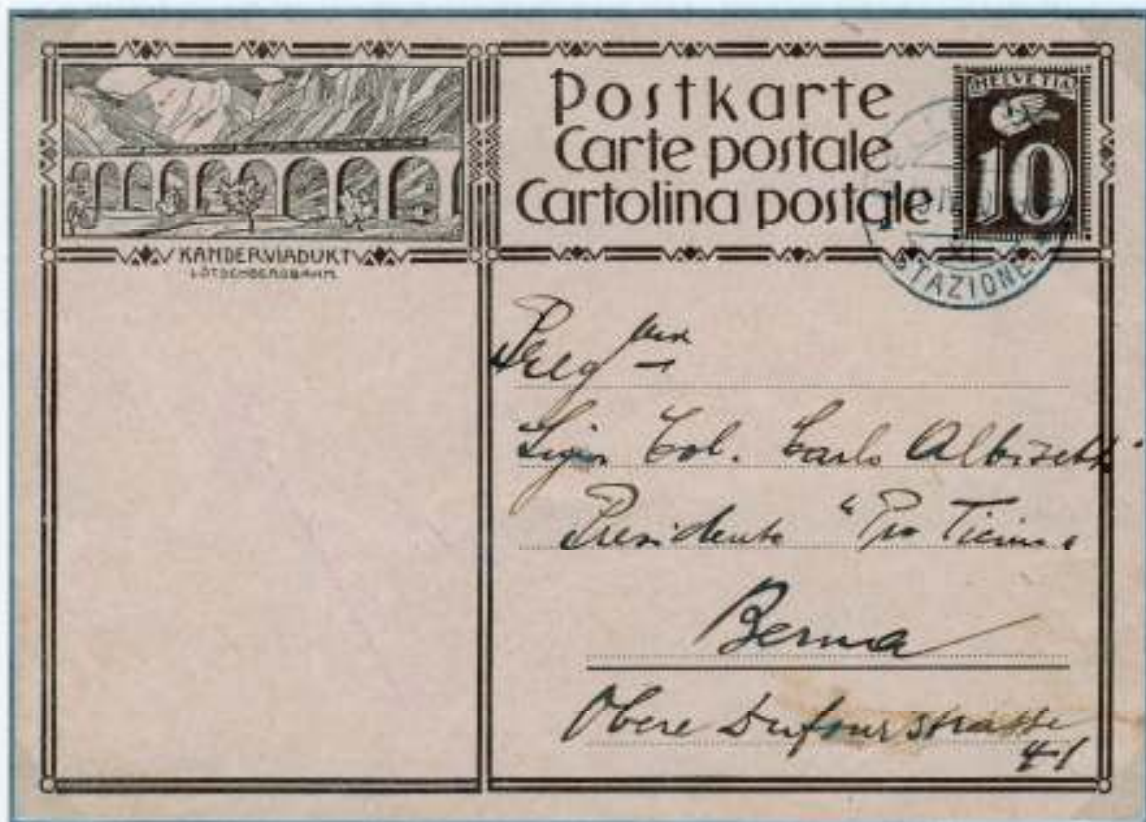 KANDERVIADUKT
LÖTSCHBERGBAHN
Postkarte
Carte postale
Cartolina postale
HELVETIA
10
STAZIONE
Preg
Sign Col. Carlo Albisetti
Presidente "Pro Ticino"
Berna
Obere Dufourstrasse
41